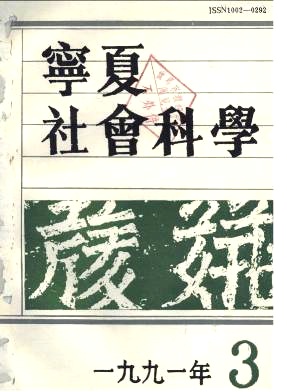 ISSN1002—0292
寧夏
社會科學
一九九一年 3